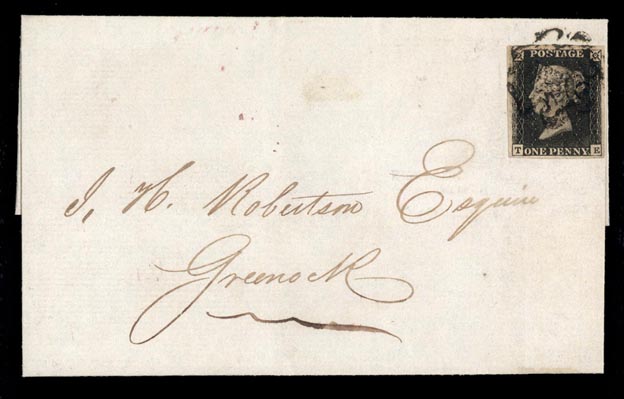 POSTAGE
T E
ONE PENNY
J. H. Robertson Esquire
Greenock